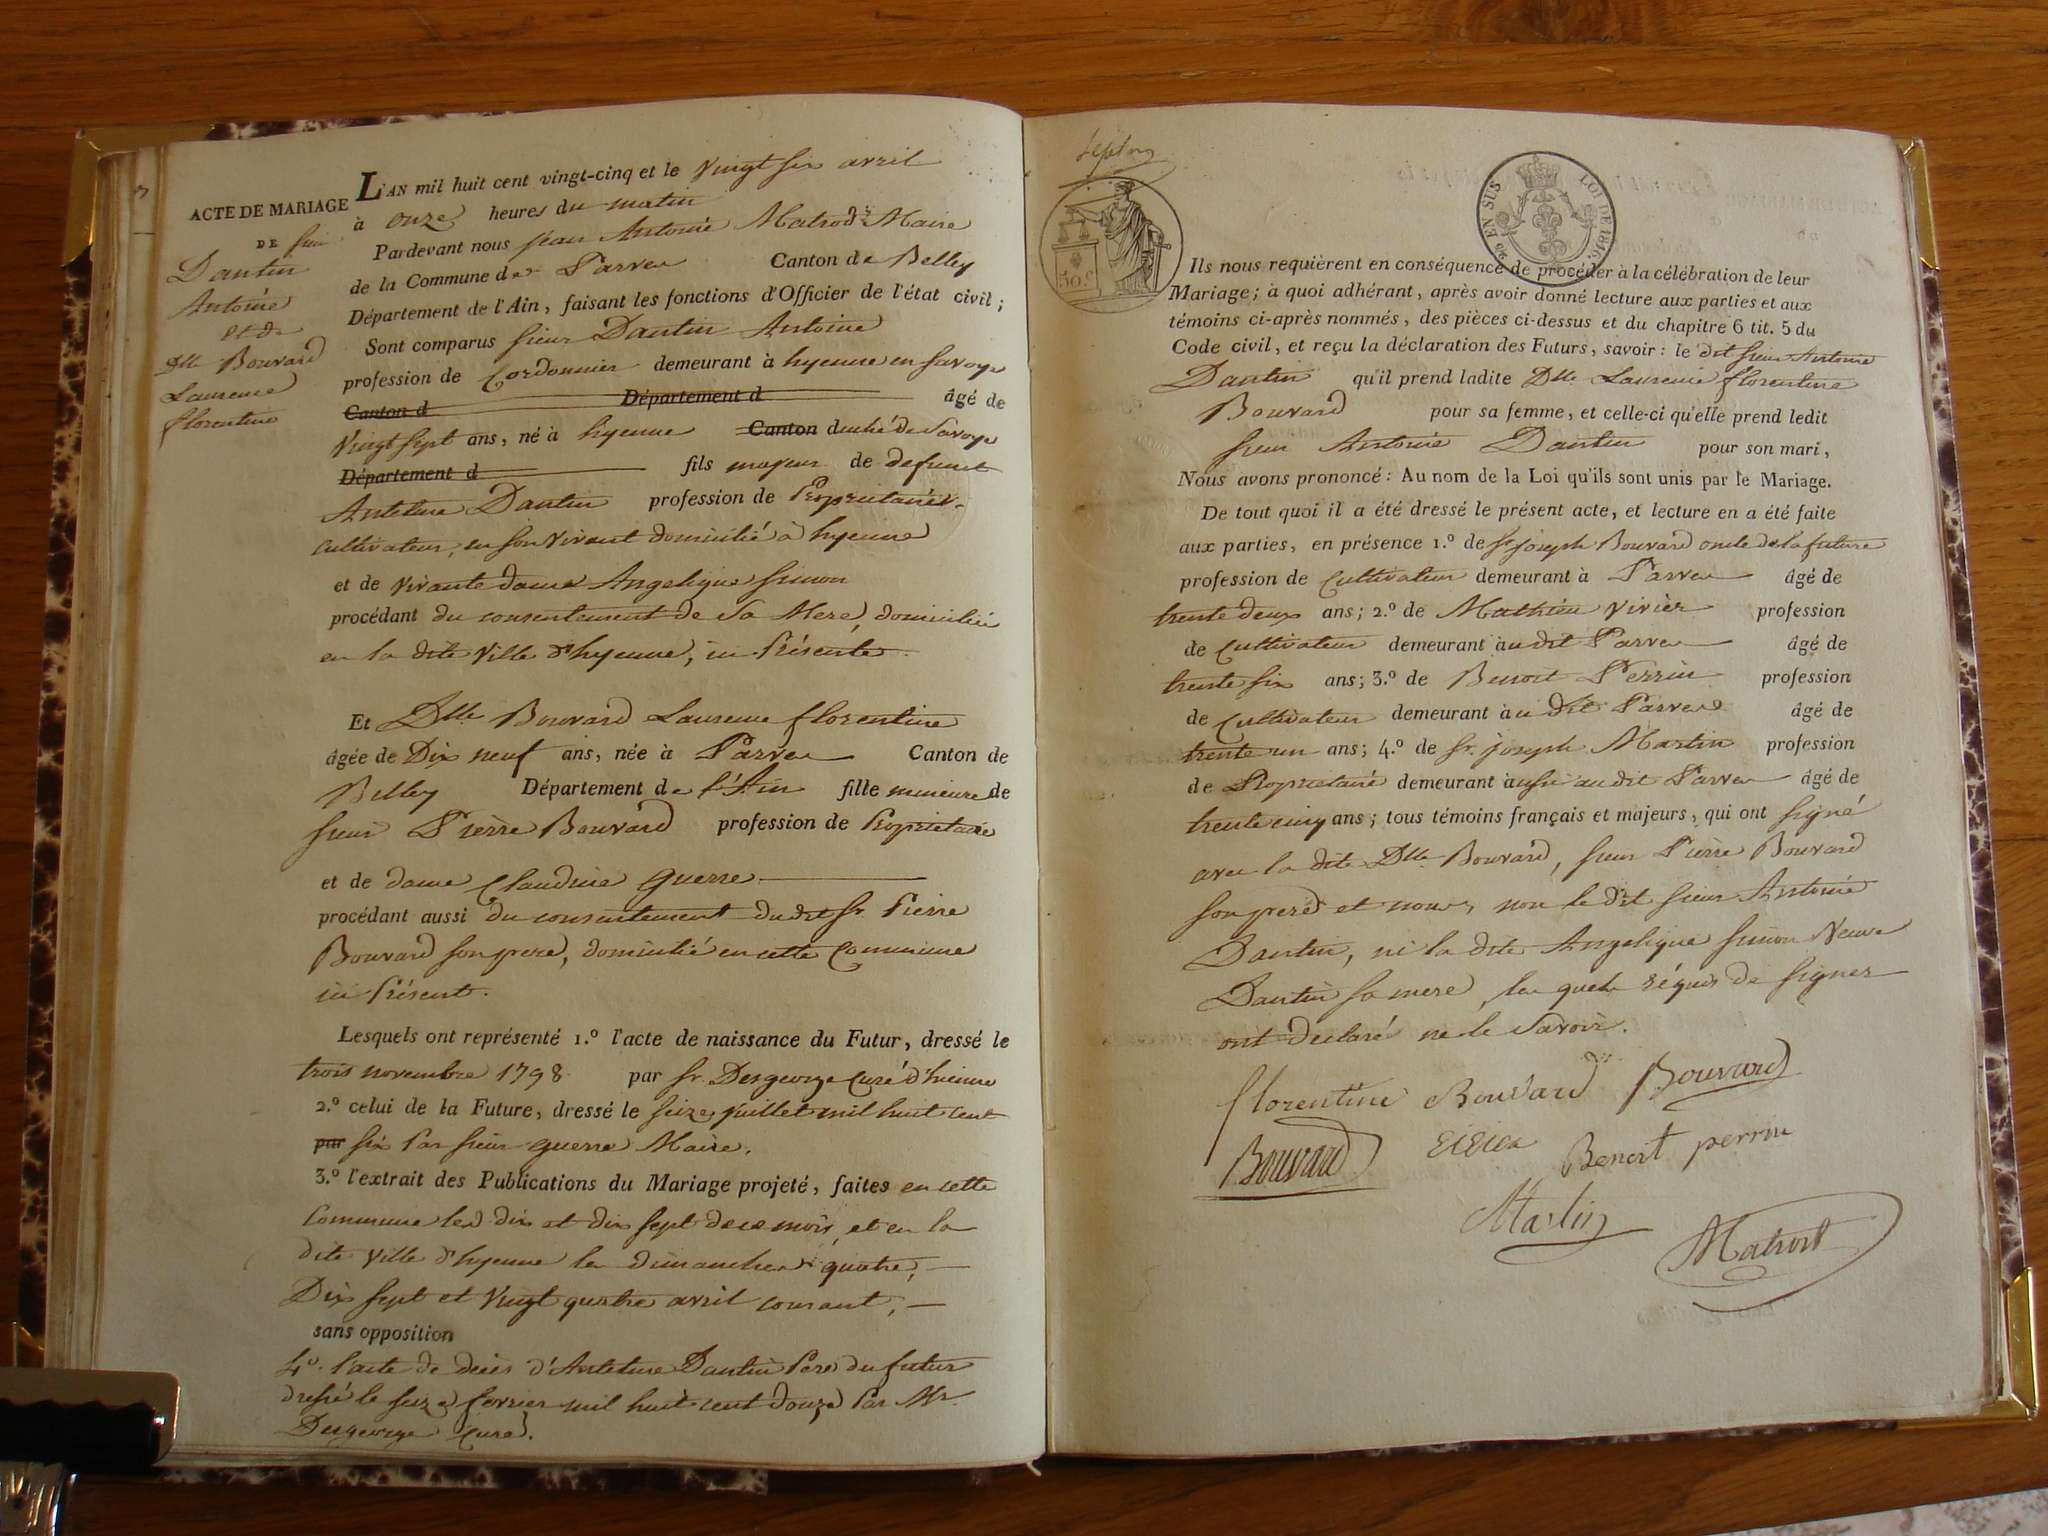 ACTE DE MARIAGE
DE sieur
Dantin
Antoine
et de
Dlle Bouvard
Laurence
florentine
L'AN mil huit cent vingt-cinq et le vingt six avril
à onze heures du matin
Pardevant nous jean Antoine Matrod Maire
de la Commune de Parves Canton de Belley
Département de l'Ain, faisant les fonctions d'Officier de l'état civil;
Sont comparus sieur Dantin Antoine
profession de Cordonnier demeurant à hyenne en Savoye
Canton d Département d âgé de
Vingt sept ans, né à hyenne Canton duché de Savoye
Département d fils majeur de defunct
Antelme Dantin profession de Proprietaire
cultivateur, en son vivant domicilié à hyenne
et de vivante dame Angelique Simon
procédant du consentement de Sa Mere, domiciliée
en la dite Ville d'hyenne, ici Présente.
Et Dlle Bouvard Laurence florentine
âgée de Dix neuf ans, née à Parves Canton de
Belley Département de l'Ain fille mineure de
sieur Pierre Bouvard profession de Proprietaire
et de dame Claudine Guerre
procédant aussi du consentement du dit Sr. Pierre
Bouvard son pere, domicilié en cette Commune
ici Présent.
Lesquels ont représenté 1.º l'acte de naissance du Futur, dressé le
trois novembre 1798 par Sr. Desgeorge Curé d'hienne
2.º celui de la Future, dressé le seize juillet mil huit cent
par six Par sieur Guerre Maire.
3.º l'extrait des Publications du Mariage projeté, faites en cette
Commune les dix et dix sept de ce mois, et en la
dite ville d'hyenne les dimanches quatre,
Dix sept et Vingt quatre avril courant,
sans opposition
4º. l'acte de décès d'Antelme Dantin Pere du futur
dressé le seize fevrier mil huit cent douze Par Mr.
Desgeorge Curé.
50 C.
20 EN SUS LOI DE 1816
Ils nous requièrent en conséquence de procéder à la célébration de leur
Mariage; à quoi adhérant, après avoir donné lecture aux parties et aux
témoins ci-après nommés, des pièces ci-dessus et du chapitre 6 tit. 5 du
Code civil, et reçu la déclaration des Futurs, savoir: le dit sieur Antoine
Dantin qu'il prend ladite Dlle Laurence florentine
Bouvard pour sa femme, et celle-ci qu'elle prend ledit
sieur Antoine Dantin pour son mari,
Nous avons prononcé: Au nom de la Loi qu'ils sont unis par le Mariage.
De tout quoi il a été dressé le présent acte, et lecture en a été faite
aux parties, en présence 1.º de Sr joseph Bouvard oncle de la future
profession de Cultivateur demeurant à Parves âgé de
trente deux ans; 2.º de Mathieu Vivier profession
de Cultivateur demeurant au dit Parves âgé de
trente six ans; 3.º de Benoit Perrin profession
de Cultivateur demeurant au dit Parves âgé de
trente un ans; 4.º de Sr. joseph Martin profession
de Proprietaire demeurant aussi au dit Parves âgé de
trente cinq ans; tous témoins français et majeurs, qui ont signé
avec la dite Dlle Bouvard, sieur Pierre Bouvard
son pere et nous, non le dit sieur Antoine
Dantin, ni la dite Angelique Simon Veuve
Dantin sa mere, les quels réquis de signer
ont declaré ne le Savoir.
florentine Bouvard Bouvard
Bouvard Benoit perrin
Martin
Matrod